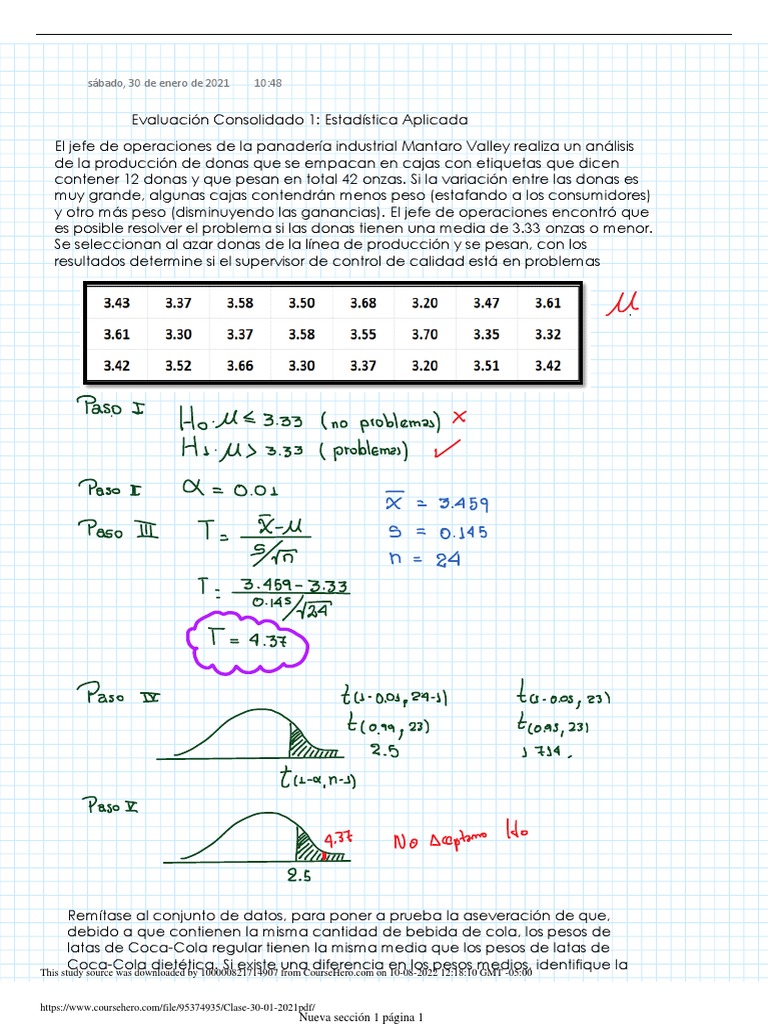 sábado, 30 de enero de 2021 10:48
Evaluación Consolidado 1: Estadística Aplicada
El jefe de operaciones de la panadería industrial Mantaro Valley realiza un análisis
de la producción de donas que se empacan en cajas con etiquetas que dicen
contener 12 donas y que pesan en total 42 onzas. Si la variación entre las donas es
muy grande, algunas cajas contendrán menos peso (estafando a los consumidores)
y otro más peso (disminuyendo las ganancias). El jefe de operaciones encontró que
es posible resolver el problema si las donas tienen una media de 3.33 onzas o menor.
Se seleccionan al azar donas de la línea de producción y se pesan, con los
resultados determine si el supervisor de control de calidad está en problemas
3.43 3.37 3.58 3.50 3.68 3.20 3.47 3.61
μ
3.61 3.30 3.37 3.58 3.55 3.70 3.35 3.32
3.42 3.52 3.66 3.30 3.37 3.20 3.51 3.42
Paso I
H0: μ ≤ 3.33 (no problemas) ✗
H1: μ > 3.33 (problemas) ✓
Paso II α = 0.01
x̄ = 3.459
s = 0.145
n = 24
Paso III T = x̄-μ / s/√n
T = 3.459-3.33 / 0.145/√24
T = 4.37
Paso IV
t(1-0.01, 24-1) t(1-0.05, 23)
t(0.99, 23) t(0.95, 23)
2.5 1.714.
t(1-α, n-1)
Paso V
4.37
No Aceptamo Ho
2.5
Remítase al conjunto de datos, para poner a prueba la aseveración de que,
debido a que contienen la misma cantidad de bebida de cola, los pesos de
latas de Coca-Cola regular tienen la misma media que los pesos de latas de
Coca-Cola dietética. Si existe una diferencia en los pesos medios, identifique la
This study source was downloaded by 100000821714907 from CourseHero.com on 10-08-2022 12:18:10 GMT -05:00
https://www.coursehero.com/file/95374935/Clase-30-01-2021pdf/
Nueva sección 1 página 1